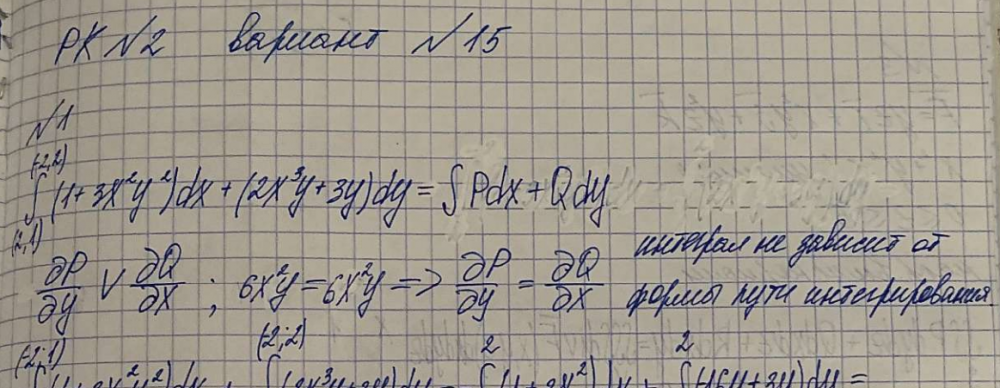 РК №2 вариант №15
№1
(-2,2)
∫ (1+3x²y²)dx + (2x³y+3y)dy = ∫Pdx + Qdy
(2,1)
∂P/∂y ∨ ∂Q/∂x ; 6x²y = 6x²y => ∂P/∂y = ∂Q/∂x интеграл не зависит от
формы пути интегрирования
(-2;1) (-2;2) 2 2